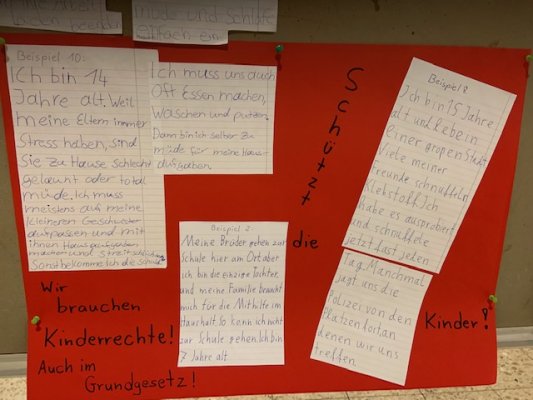 müde und schlafe
einfach ein.
Beispiel 10:
Ich bin 14
Jahre alt. Weil
meine Eltern immer
Stress haben, sind
Sie zu Hause schlecht
gelaunt oder total
müde. Ich muss
meistens auf meine
kleineren Geschwister
aufpassen und mit
ihnen Hausaufgaben
machen und Streit schlichten
Sonst bekomme ich die Schuld
Ich muss uns auch
Oft Essen machen,
waschen und putzen.
Dann bin ich selber zu
müde für meine Haus-
aufgaben.
Schützt
die
Kinder!
Beispiel 2
Meine Brüder gehen zur
Schule hier am Ort aber
ich bin die einzige Tochter
und meine Familie braucht
mich für die Mithilfe im
Haushalt. So kann ich nicht
zur Schule gehen. Ich bin
7 Jahre alt
Beispiel 8
Ich bin 15 Jahre
alt und lebe in
einer großen Stadt
Viele meiner
Freunde schnüffeln
Klebstoff. Ich
habe es ausprobiert
und schnüffele
jetzt fast jeden
Tag. Manchmal
jagt uns die
Polizei von den
Plätzen fort an
denen wir uns
treffen.
Wir
brauchen
Kinderrechte!
Auch im
Grundgesetz!